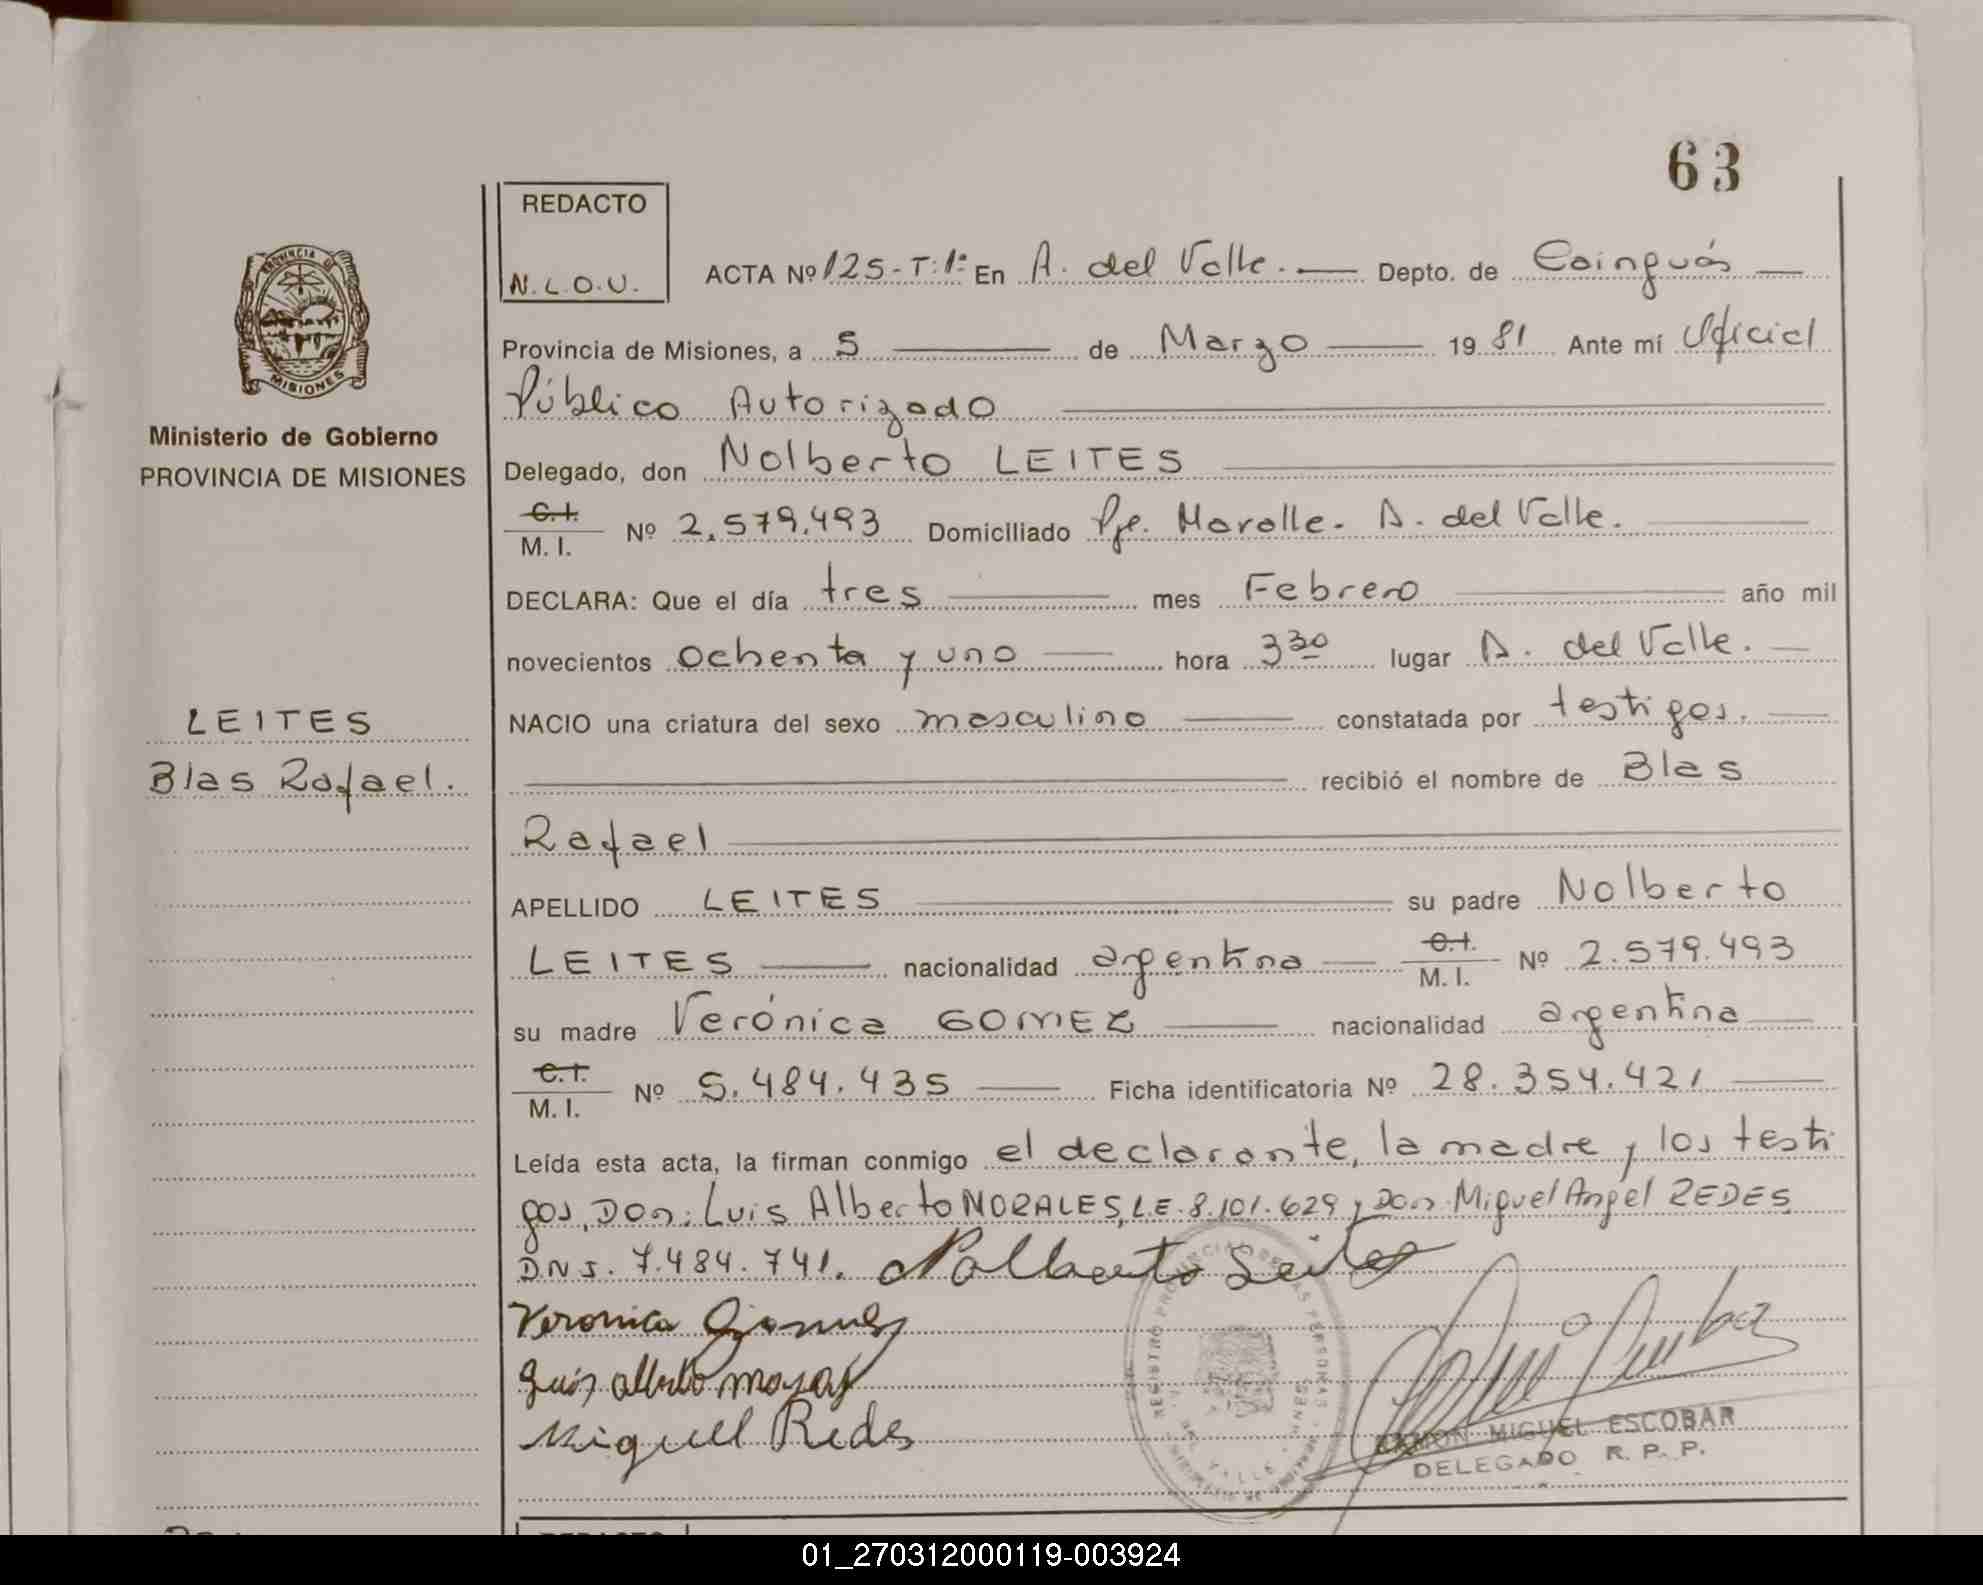 63
REDACTO
N.L.O.U.
ACTA Nº 125-T:1º En A. del Valle. Depto. de Cainguás
Provincia de Misiones, a 5 de Marzo 1981 Ante mi Oficial
Público Autorizado
Delegado, don Nolberto LEITES
C.I.
M. I. Nº 2.579.493 Domiciliado Pje. Maralle. A. del Valle.
DECLARA: Que el día tres mes Febrero año mil
novecientos ochenta y uno hora 3 30 lugar A. del Valle.
NACIO una criatura del sexo masculino constatada por testigos.
recibió el nombre de Blas
Rafael
APELLIDO LEITES su padre Nolberto
LEITES nacionalidad argentina C.I. M. I. Nº 2.579.493
su madre Verónica GOMEZ nacionalidad argentina
C.I.
M. I. Nº 5.484.435 Ficha identificatoria Nº 28.354.421
Leída esta acta, la firman conmigo el declarante, la madre y los testi
gos, Don: Luis Alberto MORALES, L.E. 8.101.629 y Don Miguel Angel REDES
DNI. 7.484.741. Nolberto Leites
Veronica Gomez
Luis Alberto
Miguel Redes
REGISTRO PROVINCIAL DE LAS PERSONAS
RAMON MIGUEL ESCOBAR
DELEGADO R. P. P.
PROVINCIA DE
MISIONES
Ministerio de Gobierno
PROVINCIA DE MISIONES
LEITES
Blas Rafael.
REDACTO
01_270312000119-003924